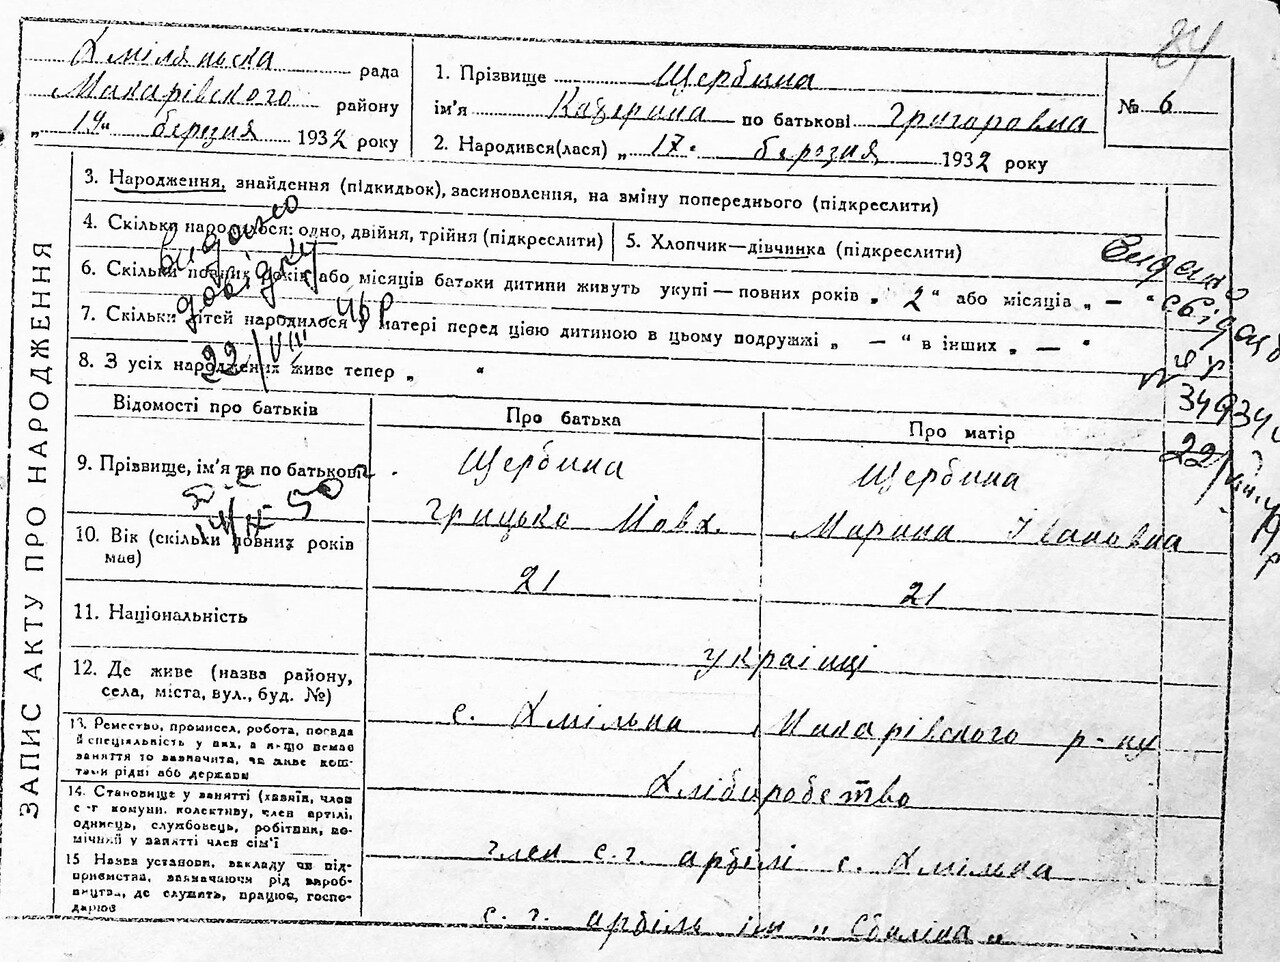 84
Хмілянська рада
Макарівского району
„ 19 " березня 1932 року
1. Прізвище Щербина
ім'я Катерина по батькові Григоровна
2. Народився(лася) „ 17 " березня 1932 року
№ 6
ЗАПИС АКТУ ПРО НАРОДЖЕННЯ
3. Народження, знайдення (підкидьок), засиновлення, на зміну попереднього (підкреслити)
4. Скільки народилося: одно, двійня, трійня (підкреслити)
5. Хлопчик—дівчинка (підкреслити)
6. Скільки повних років або місяців батьки дитини живуть укупі — повних років „ 2 " або місяців „ — "
7. Скільки дітей народилося у матері перед цією дитиною в цьому подружжі „ — " в інших „ — "
8. З усіх народжених живе тепер „ "
видано
довідку
22/VIII
Видано
свідоцт
34934
22/
Відомості про батьків
Про батька
Про матір
9. Прізвище, ім'я та по батькові
Щербина
Грицько Йовх.
Щербина
Марина Івановна
50
10. Вік (скільки повних років мав)
21
21
11. Національність
українці
12. Де живе (назва району,
села, міста, вул., буд. №)
с. Хмільна Макарівского р-ну
13. Ремество, промисел, робота, посада
й спеціяльність у них, а якщо немає
заняття то зазначити, чи живе кош-
тами рідні або держави
Хліборобство
14. Становище у занятті (хазяїн, член
с-г комуни, колективу, член артілі,
одинець, службовець, робітник, по-
мічний у занятті член сім'ї
член с.г. артілі с. Хмільна
15 Назва установи, закладу чи під-
приємства, зазначаючи рід вироб-
ництва, де служить, працює, госпо-
дарює
с. г. артіль ім „ Сталіна "